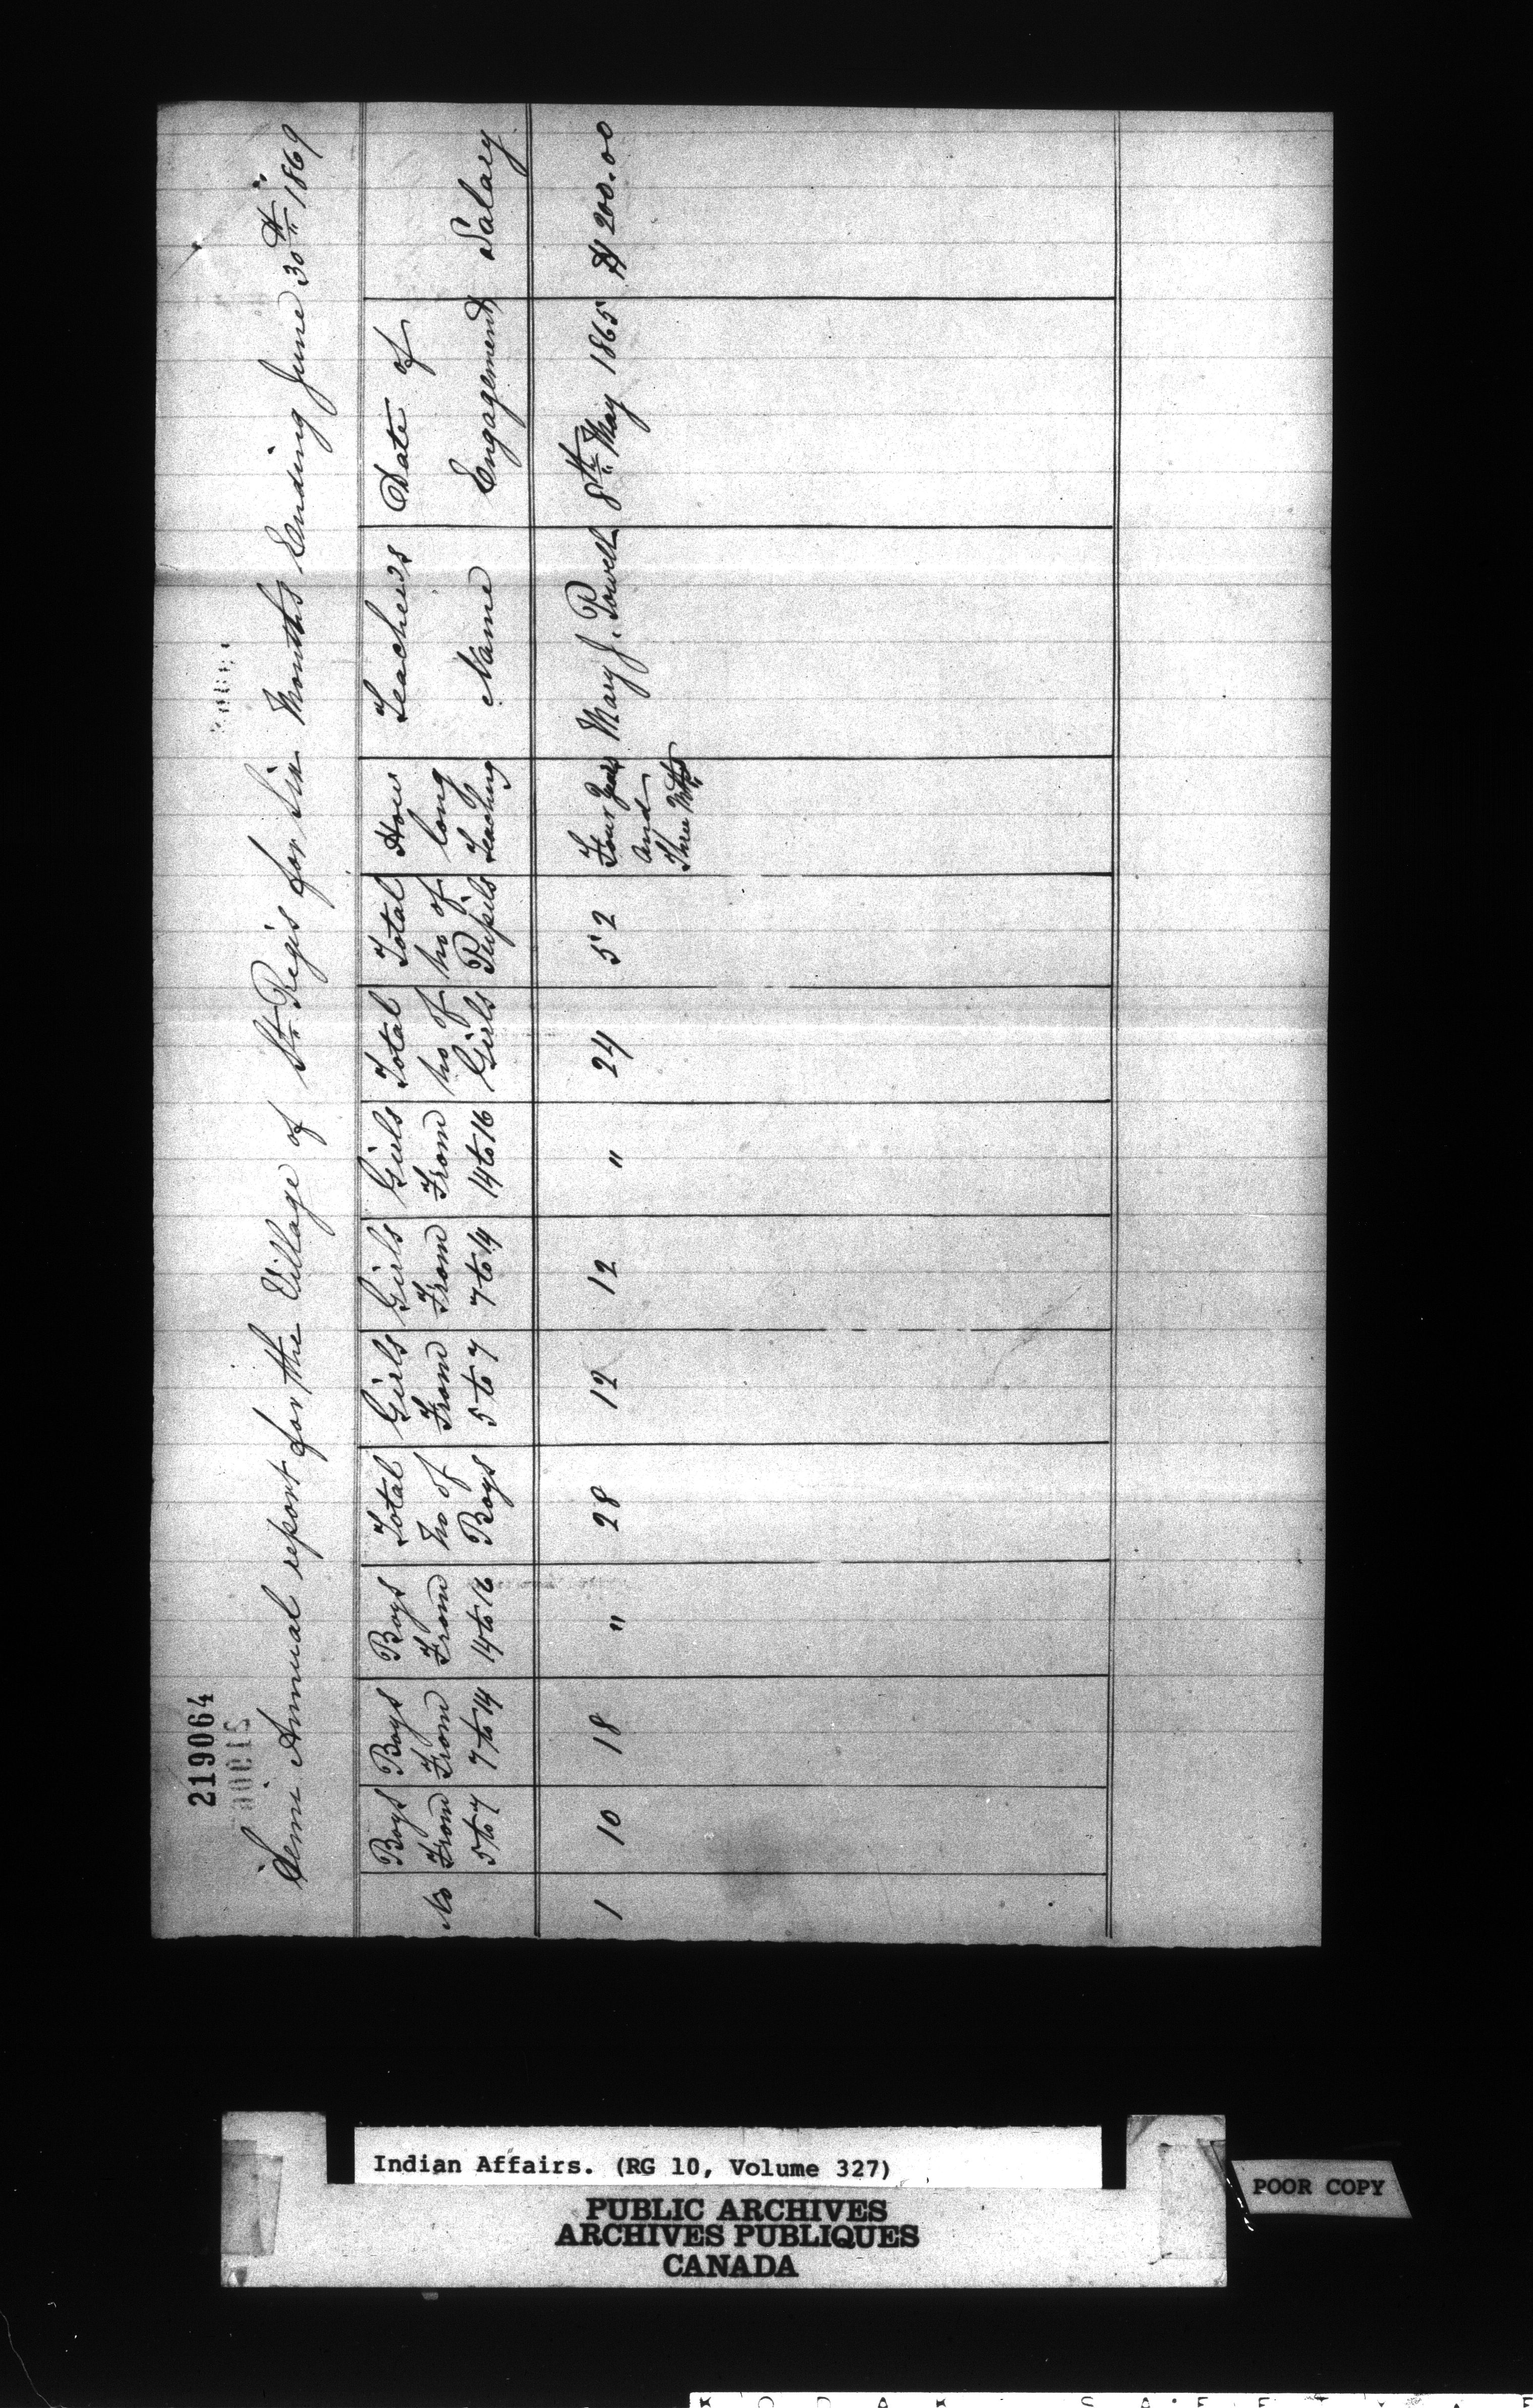 219064
Semi Annual report for the Village of St Regis for Six Months Ending June 30th 1869
No | Boys From 5 to 7 | Boys From 7 to 14 | Boys From 14 to 16 | Total no of Boys | Girls From 5 to 7 | Girls From 7 to 14 | Girls From 14 to 16 | Total no of Girls | Total no of Pupils | How long Teaching | Teachers Name | Date of Engagement | Salary
1 | 10 | 18 | " | 28 | 12 | 12 | " | 24 | 52 | Four Years and Three Mths | Mary J. Powell | 8th May 1865 | $200.00
Indian Affairs. (RG 10, Volume 327)
PUBLIC ARCHIVES
ARCHIVES PUBLIQUES
CANADA
POOR COPY
KODAK SAFETY